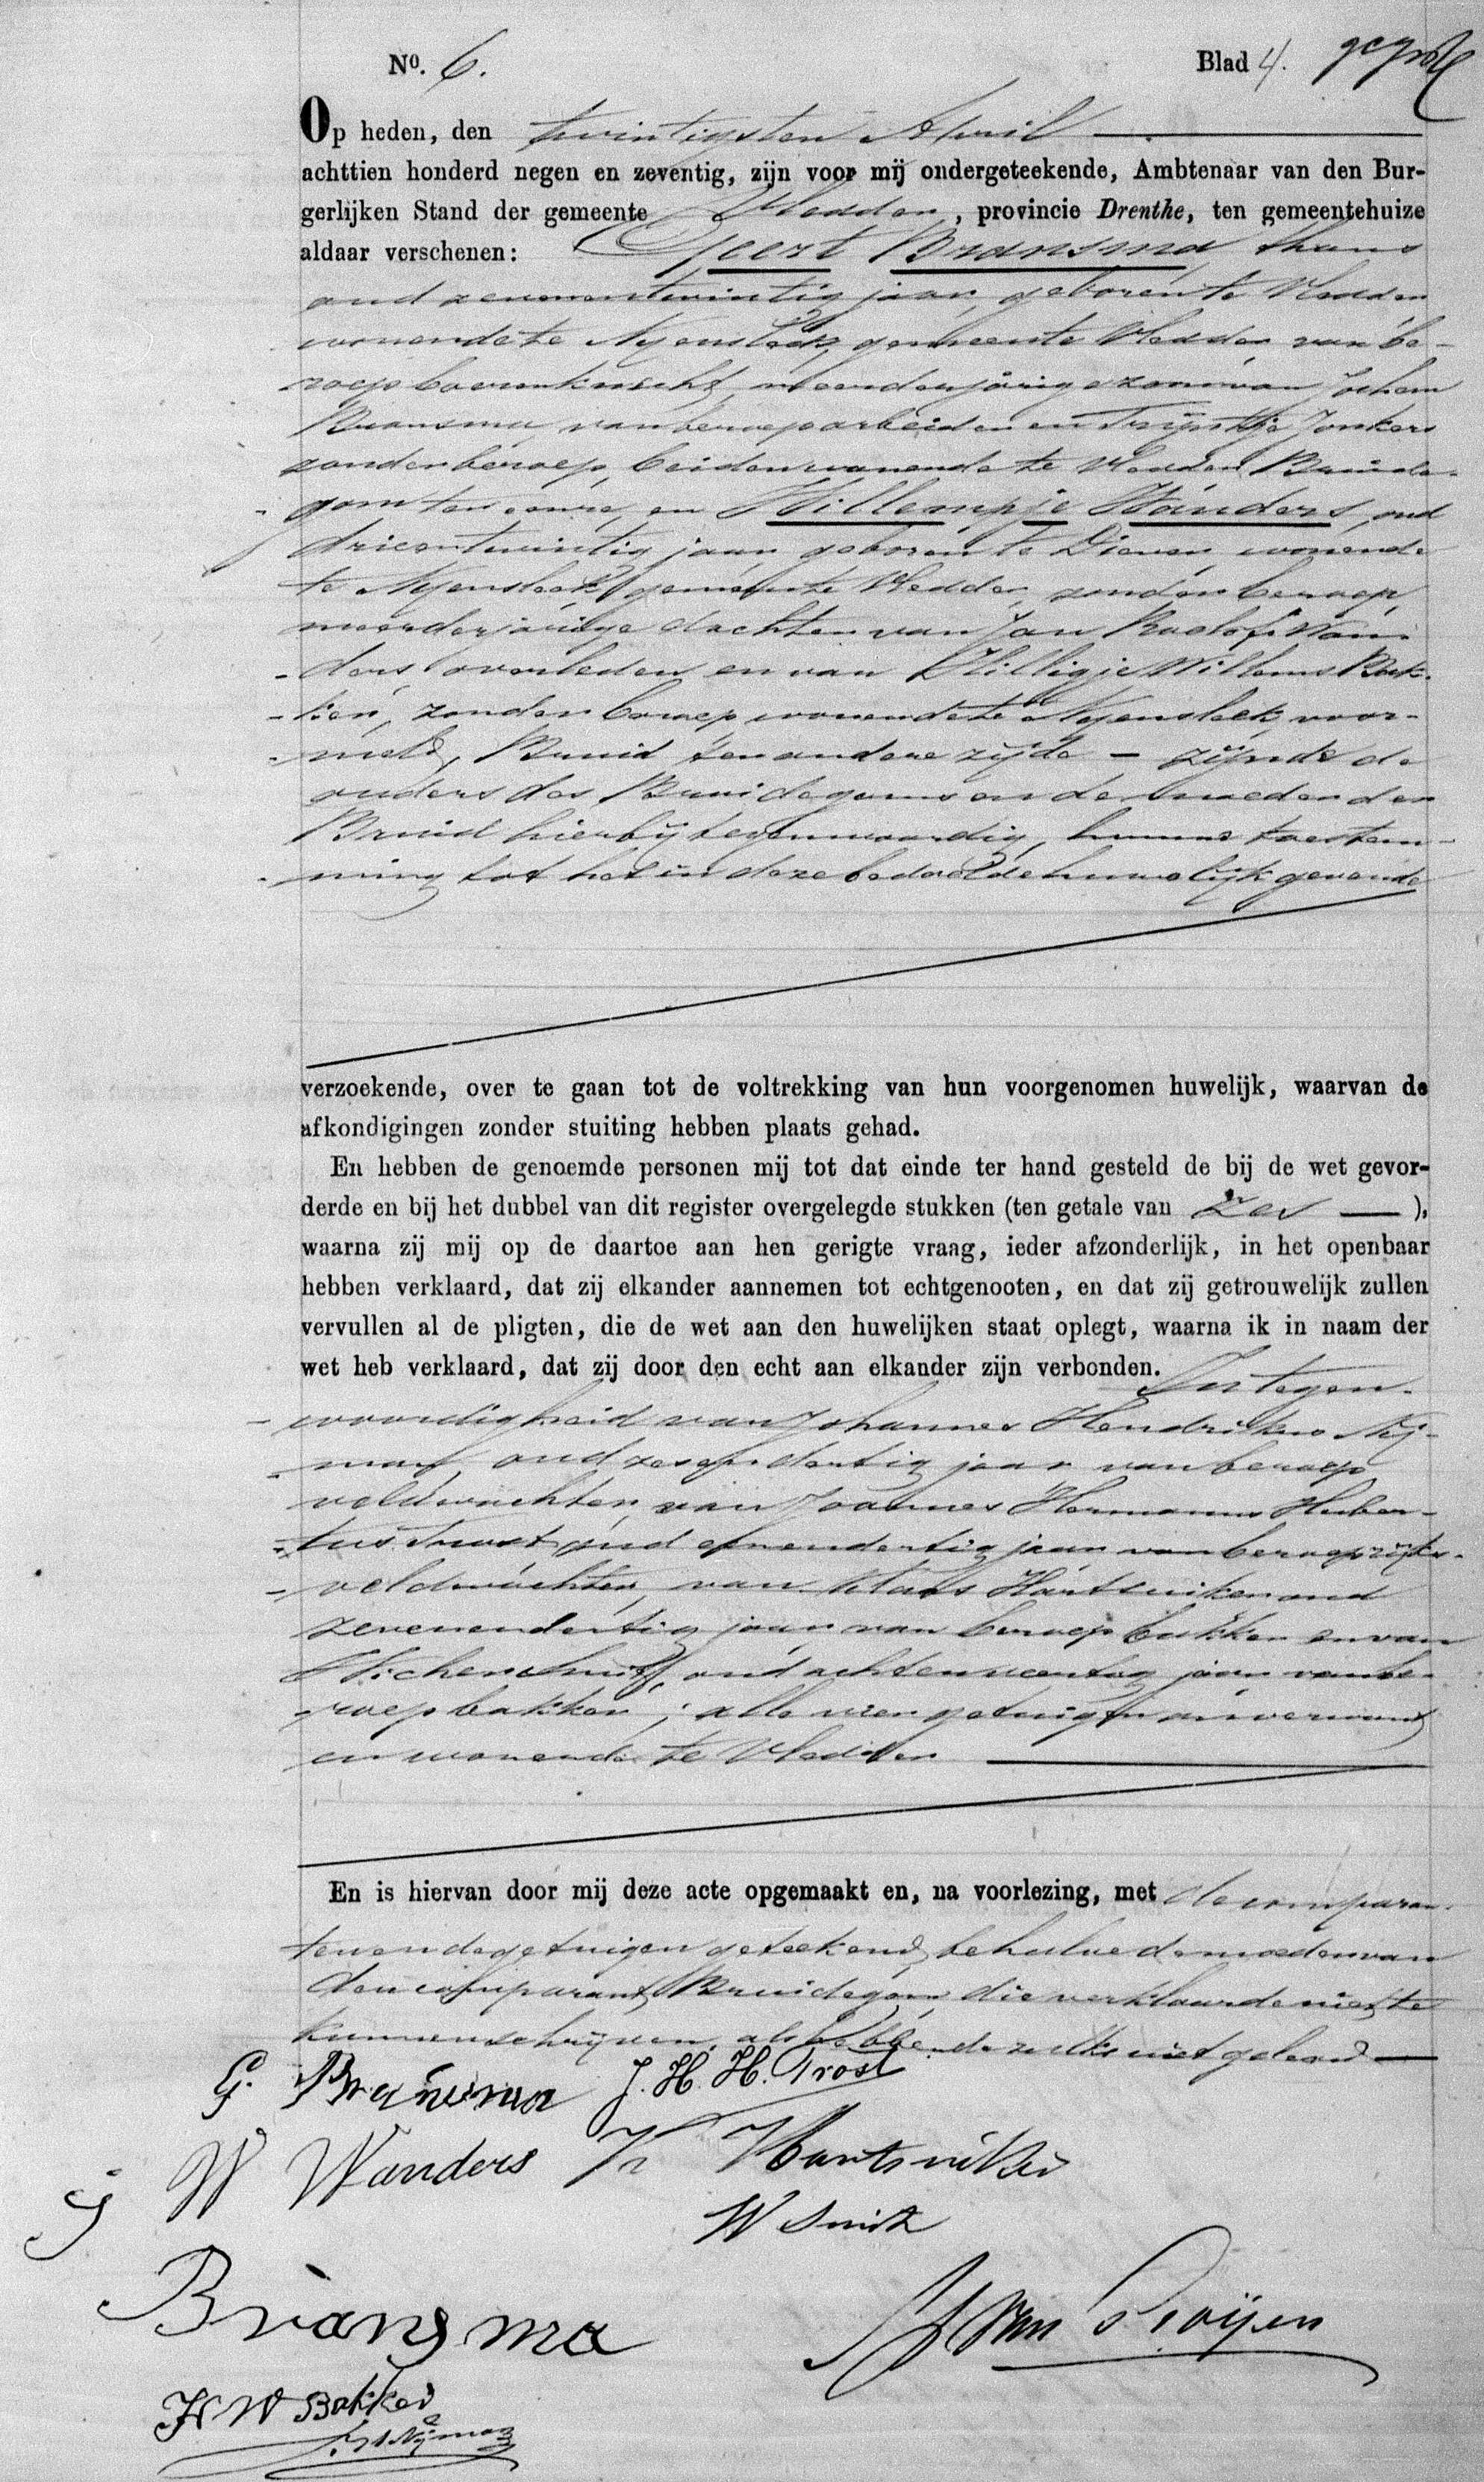 No. 6. Blad 4.
Op heden, den twintigsten April
achttien honderd negen en zeventig, zijn voor mij ondergeteekende, Ambtenaar van den Bur-
gerlijken Stand der gemeente Vledder, provincie Drenthe, ten gemeentehuize
aldaar verschenen: Geert Bransma, thans
oud zevenentwintig jaar, geboren te Vledder
wonende te Nijensleek, gemeente Vledder van be-
roep boerenknecht, meerderjarige zoon van Jochem
Bransma, van beroep arbeider en Trijntje Jonkers
zonder beroep, beiden wonende te Vledder, Bruide-
gom ter eenre, en Willempje Wanders, oud
drieentwintig jaar, geboren te Diever, wonende
te Nijensleek, gemeente Vledder, zonder beroep,
meerderjarige dochter van Jan Roelofs Wan-
ders, overleden en van Hilligje Willems Bak-
ker, zonder beroep wonende te Nijensleek voor-
meld, Bruid ter andere zijde – zijnde de
ouders des Bruidegoms en de moeder der
Bruid hierbij tegenwoordig, hunne toestem-
ming tot het in deze bedoelde huwelijk gevende
verzoekende, over te gaan tot de voltrekking van hun voorgenomen huwelijk, waarvan de
afkondigingen zonder stuiting hebben plaats gehad.
En hebben de genoemde personen mij tot dat einde ter hand gesteld de bij de wet gevor-
derde en bij het dubbel van dit register overgelegde stukken (ten getale van zes —),
waarna zij mij op de daartoe aan hen gerigte vraag, ieder afzonderlijk, in het openbaar
hebben verklaard, dat zij elkander aannemen tot echtgenooten, en dat zij getrouwelijk zullen
vervullen al de pligten, die de wet aan den huwelijken staat oplegt, waarna ik in naam der
wet heb verklaard, dat zij door den echt aan elkander zijn verbonden. In tegen-
woordigheid van Johannes Hendrikus Nij-
man, oud zesendertig jaar van beroep
veldwachter, van Joannes Hermanus Huber-
tus Trost, oud eenendertig jaar van beroep rijks-
veldwachter, van Klaas Hartsuiker oud
zevenendertig jaar, van beroep bakker en van
Wicher Smit, oud achtenveertig jaar van be-
roep bakker; alle vier getuigen onverwant
en wonende te Vledder
En is hiervan door mij deze acte opgemaakt en, na voorlezing, met de comparan-
ten en de getuigen geteekend, behalve de moeder van
den comparant Bruidegom die verklaarde niet te
kunnen schrijven, als hebbende zulks niet geleerd —
G. Bransma J. H. H. Trost
W Wanders K Hartsuiker
W Smit
J Bransma
H W Bakker
J. H. Nijman